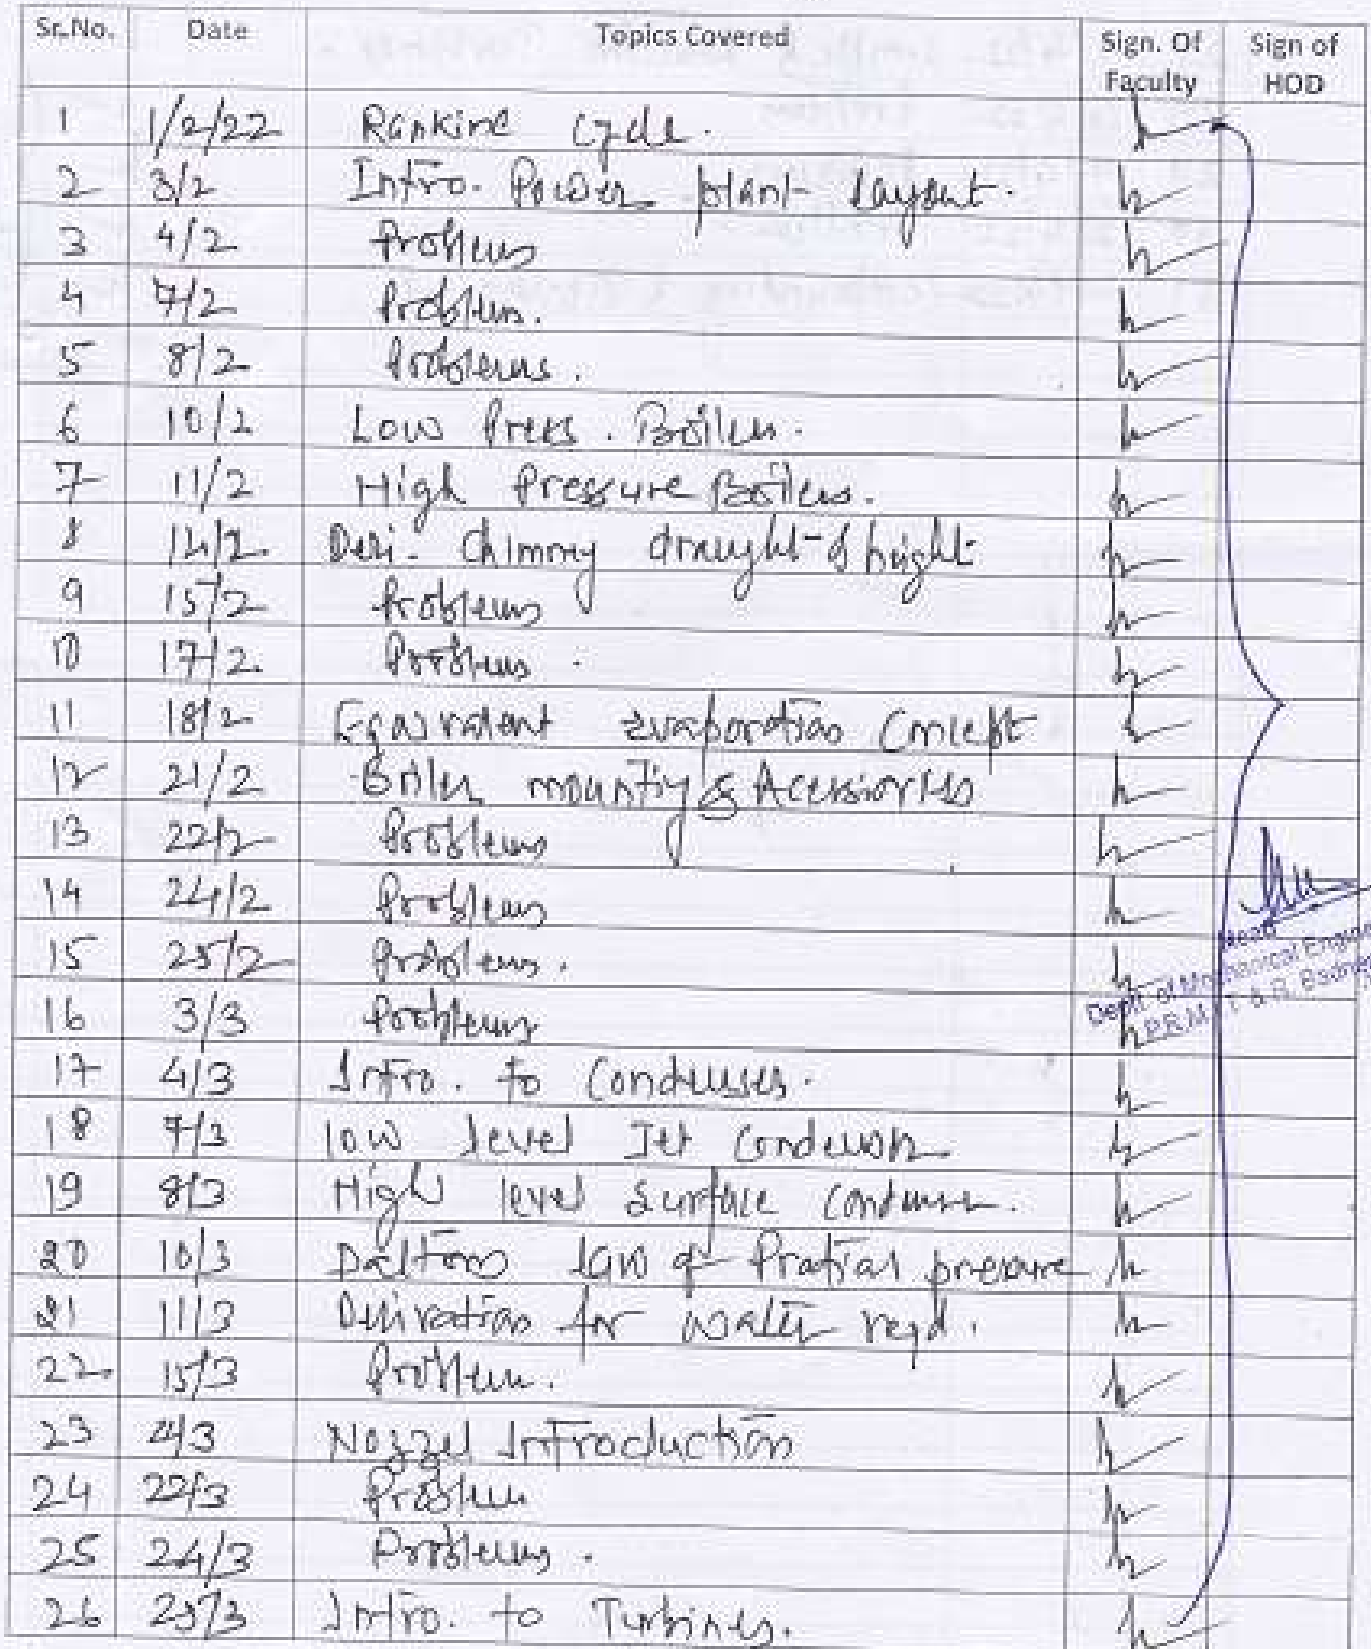 Sr.No. Date Topics Covered Sign. Of Faculty Sign of HOD
1 1/2/22 Rankine cycle.
2 3/2 Intro. Power plant Layout.
3 4/2 Problems
4 7/2 Problems.
5 8/2 Problems.
6 10/2 Low Press. Boilers.
7 11/2 High Pressure Boilers.
8 Deri. Chimney draught & height
9 15/2 Problems
10 17/2 Problems
11 18/2 Equivalent evaporation Concept
12 21/2 Boiler mounting & Acessiories
13 22/2 Problems
14 24/2 Problems
15 25/2 Problems.
Head
Deptt. of Mechanical
16 3/3 Problems
17 4/3 Intro. to Condensers.
18 7/3 low level Jet Condenser
19 8/3 High level Surface Condenser.
20 10/3 Daltons law of Pratial pressure
21 11/3 Derivation for water reqd.
22 15/3 Problem.
23 Nozzel Introduction
24 22/3 Problem
25 24/3 Problems.
26 25/3 Intro. to Turbines.